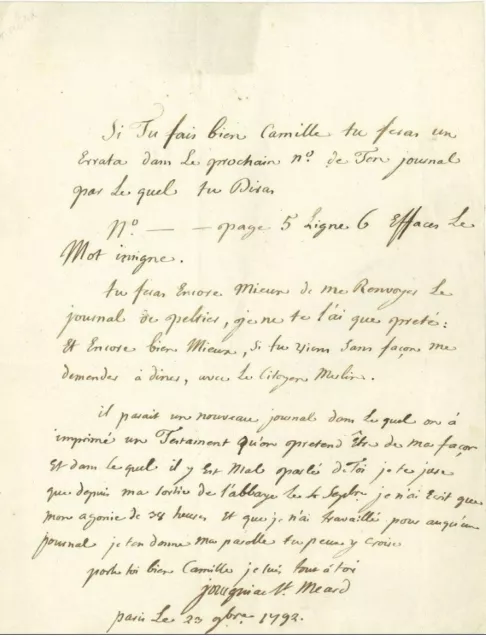 Si Tu fais bien Camille tu feras un
Errata dans Le prochain n.º de Ton journal
par Le quel tu Diras
N.º — — page 5 Ligne 6 Effaces Le
Mot insigne.
tu feras Encore Mieux de me Renvoyer Le
journal de peltier, je ne te l'ai que preté:
Et Encore bien Mieux, Si tu viens Sans façon me
demander à diner, avec Le Citoyen
il parait un nouveau journal dans Le quel on à
imprimé un Testament qu'on pretend Être de ma façon
Et dans le quel il y Est Mal parlé de Toi je te jure
que depuis ma Sortie de l'abbaye le 4 je n'ai Ecrit que
mon agonie de 38 heures Et que je n'ai travaillé pour auqu'un
journal je t'en donne ma parolle tu peux y Croire
porte toi bien Camille je suis tout à toi
jourgniac St. Meard
paris Le 23 9bre. 1792.